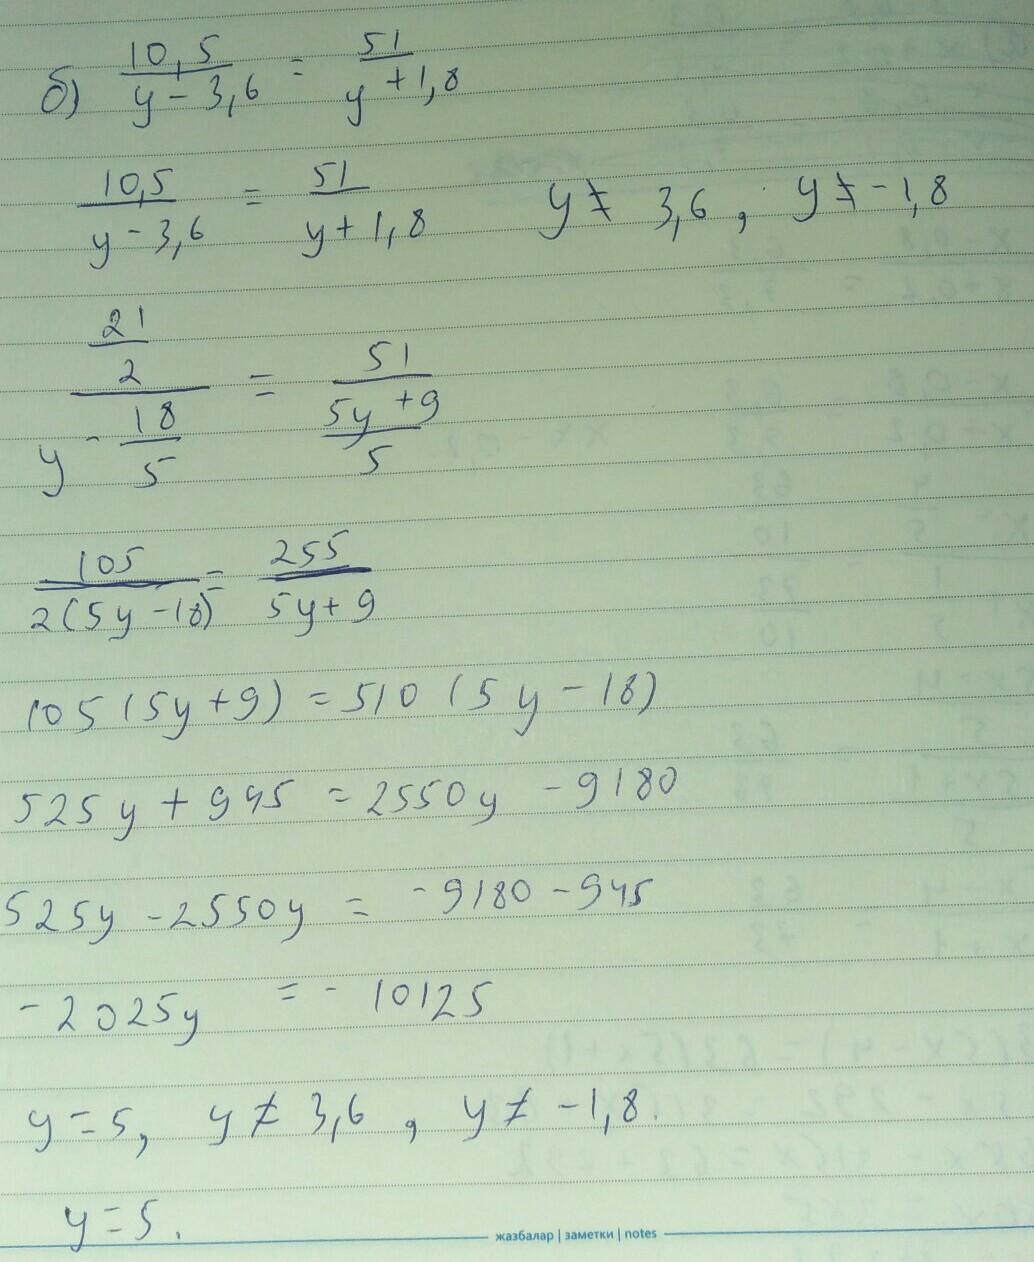 б) 10,5/(y - 3,6) = 51/(y + 1,8)
10,5/(y - 3,6) = 51/(y + 1,8) y ≠ 3,6 , y ≠ -1,8
(21/2)/(y - 18/5) = 51/((5y + 9)/5)
105/(2(5y - 18)) = 255/(5y + 9)
105 (5y + 9) = 510 (5y - 18)
525y + 945 = 2550y - 9180
525y - 2550y = -9180 - 945
-2025y = -10125
y = 5, y ≠ 3,6 , y ≠ -1,8.
y = 5.
жазбалар | заметки | notes